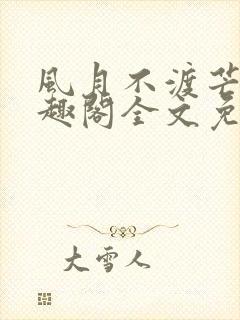 風月不渡芒
趣閣全文免
大雪人